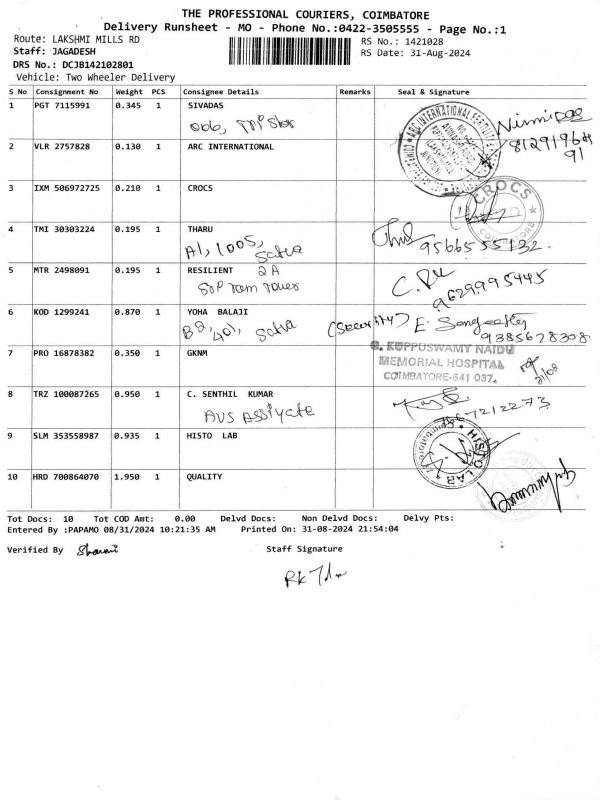 THE PROFESSIONAL COURIERS, COIMBATORE
Delivery Runsheet - MO - Phone No.:0422-3505555 - Page No.:1
Route: LAKSHMI MILLS RD
RS No.: 1421028
Staff: JAGADESH
RS Date: 31-Aug-2024
DRS No.: DCJB142102801
Vehicle: Two Wheeler Delivery
S No Consignment No Weight PCS Consignee Details Remarks Seal & Signature
1 PGT 7115991 0.345 1 SIVADAS
ARC INTERNATIONAL
2 VLR 2757828 0.130 1 ARC INTERNATIONAL
91
3 IXM 506972725 0.210 1 CROCS
CROCS
COIMBATORE
4 TMI 30303224 0.195 1 THARU
A1, 1005,
9566555132
5 MTR 2498091 0.195 1 RESILIENT 2A
9629995445
6 KOD 1299241 0.870 1 YOHA BALAJI
B2, 401, (Security)
9385678308
7 PRO 16878382 0.350 1 GKNM
G. KUPPUSWAMY NAIDU
MEMORIAL HOSPITAL
COIMBATORE-641 037.
31/08
8 TRZ 100087265 0.950 1 C. SENTHIL KUMAR
AVS
7212273
9 SLM 353558987 0.935 1 HISTO LAB
HISTO LAB
10 HRD 700864070 1.950 1 QUALITY
Tot Docs: 10 Tot COD Amt: 0.00 Delvd Docs: Non Delvd Docs: Delvy Pts:
Entered By :PAPAMO 08/31/2024 10:21:35 AM Printed On: 31-08-2024 21:54:04
Verified By
Staff Signature